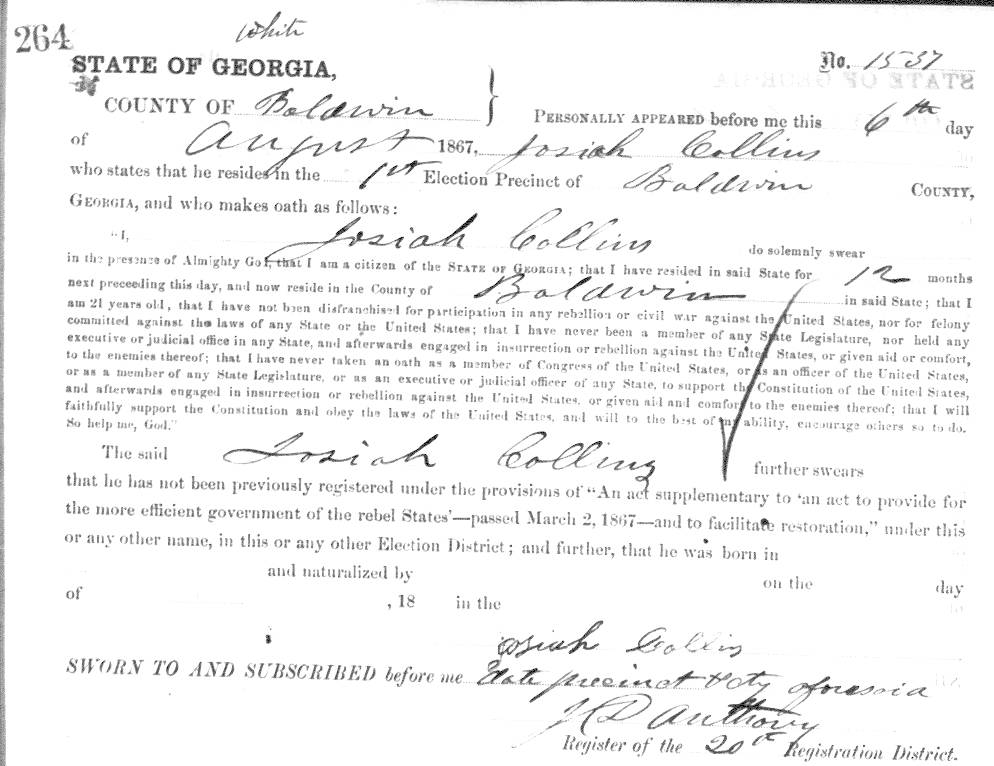 White
264
STATE OF GEORGIA,
No. 1537
COUNTY OF Baldwin } PERSONALLY APPEARED before me this 6th day
of August 1867, Josiah Collins
who states that he resides in the 1st Election Precinct of Baldwin COUNTY,
GEORGIA, and who makes oath as follows:
"I, Josiah Collins do solemnly swear
in the presence of Almighty God, that I am a citizen of the STATE OF GEORGIA; that I have resided in said State for 12 months
next preceeding this day, and now reside in the County of Baldwin in said State; that I
am 21 years old, that I have not been disfranchised for participation in any rebellion or civil war against the United States, nor for felony
committed against the laws of any State or the United States; that I have never been a member of any State Legislature, nor held any
executive or judicial office in any State, and afterwards engaged in insurrection or rebellion against the United States, or given aid or comfort,
to the enemies thereof; that I have never taken an oath as a member of Congress of the United States, or as an officer of the United States,
or as a member of any State Legislature, or as an executive or judicial officer of any State, to support the Constitution of the United States,
and afterwards engaged in insurrection or rebellion against the United States, or given aid and comfort to the enemies thereof; that I will
faithfully support the Constitution and obey the laws of the United States, and will to the best of my ability, encourage others so to do.
So help me, God."
The said Josiah Collins further swears
that he has not been previously registered under the provisions of "An act supplementary to 'an act to provide for
the more efficient government of the rebel States'—passed March 2, 1867—and to facilitate restoration," under this
or any other name, in this or any other Election District; and further, that he was born in
and naturalized by on the day
of , 18 in the
Josiah Collis
SWORN TO AND SUBSCRIBED before me date precinct & cty aforessia
J D Anthony
Register of the 20th Registration District.